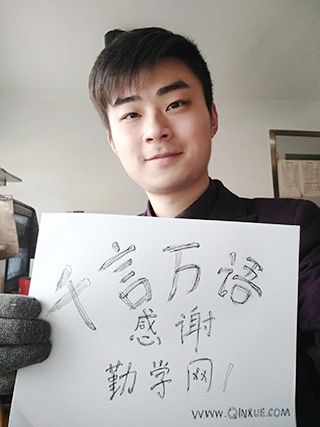 千言万语
感谢
勤学网!
WWW.QINXUE.COM